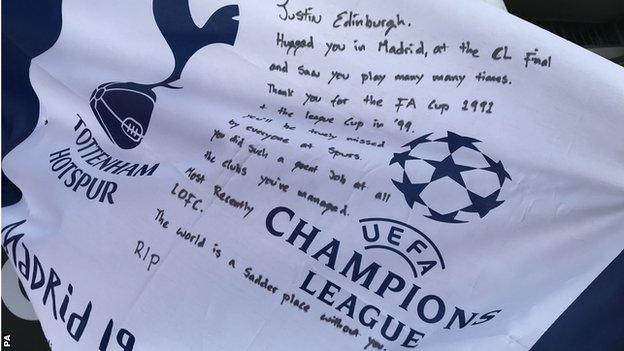 Justin Edinburgh.
Hugged you in Madrid, at the CL Final
and saw you play many many times.
Thank you for the FA Cup 1991
+ the league Cup in '99.
you'll be truly missed
by everyone at Spurs.
you did such a great Job at all
the clubs you've managed.
Most Recently
LOFC.
The world is a Sadder place without you.
RIP
TOTTENHAM
HOTSPUR
UEFA
CHAMPIONS
LEAGUE
Madrid 19
PA